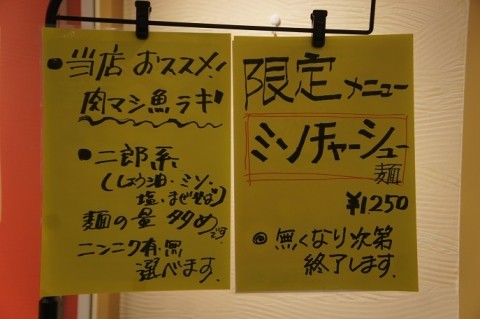 ●当店おススメ!
肉マシ魚ラキ
●二郎系
(しょう油・ミソ・
塩・まぜそば)
麺の量多めです
ニンニク有・無
選べます。
限定メニュー
ミソチャーシュー
麺
¥1250
◎無くなり次第
終了します。